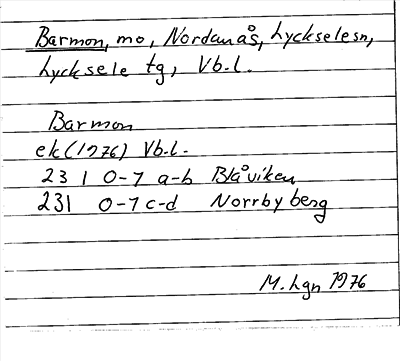 Barmon, mo, Nordanås, Lyckselesn,
Lycksele tg, Vb.l.
Barmon
ek (1976) Vb.l.
23 I 0-7 a-b Blåviken
23I 0-7 c-d Norrbyberg
M. Lgn 1976